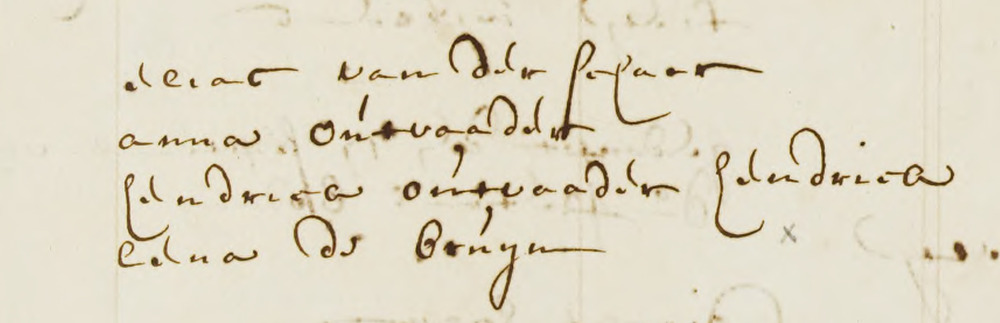 elias van der schaer
anna outvaader
hendrica outvaader hendrica
lena de bruyn